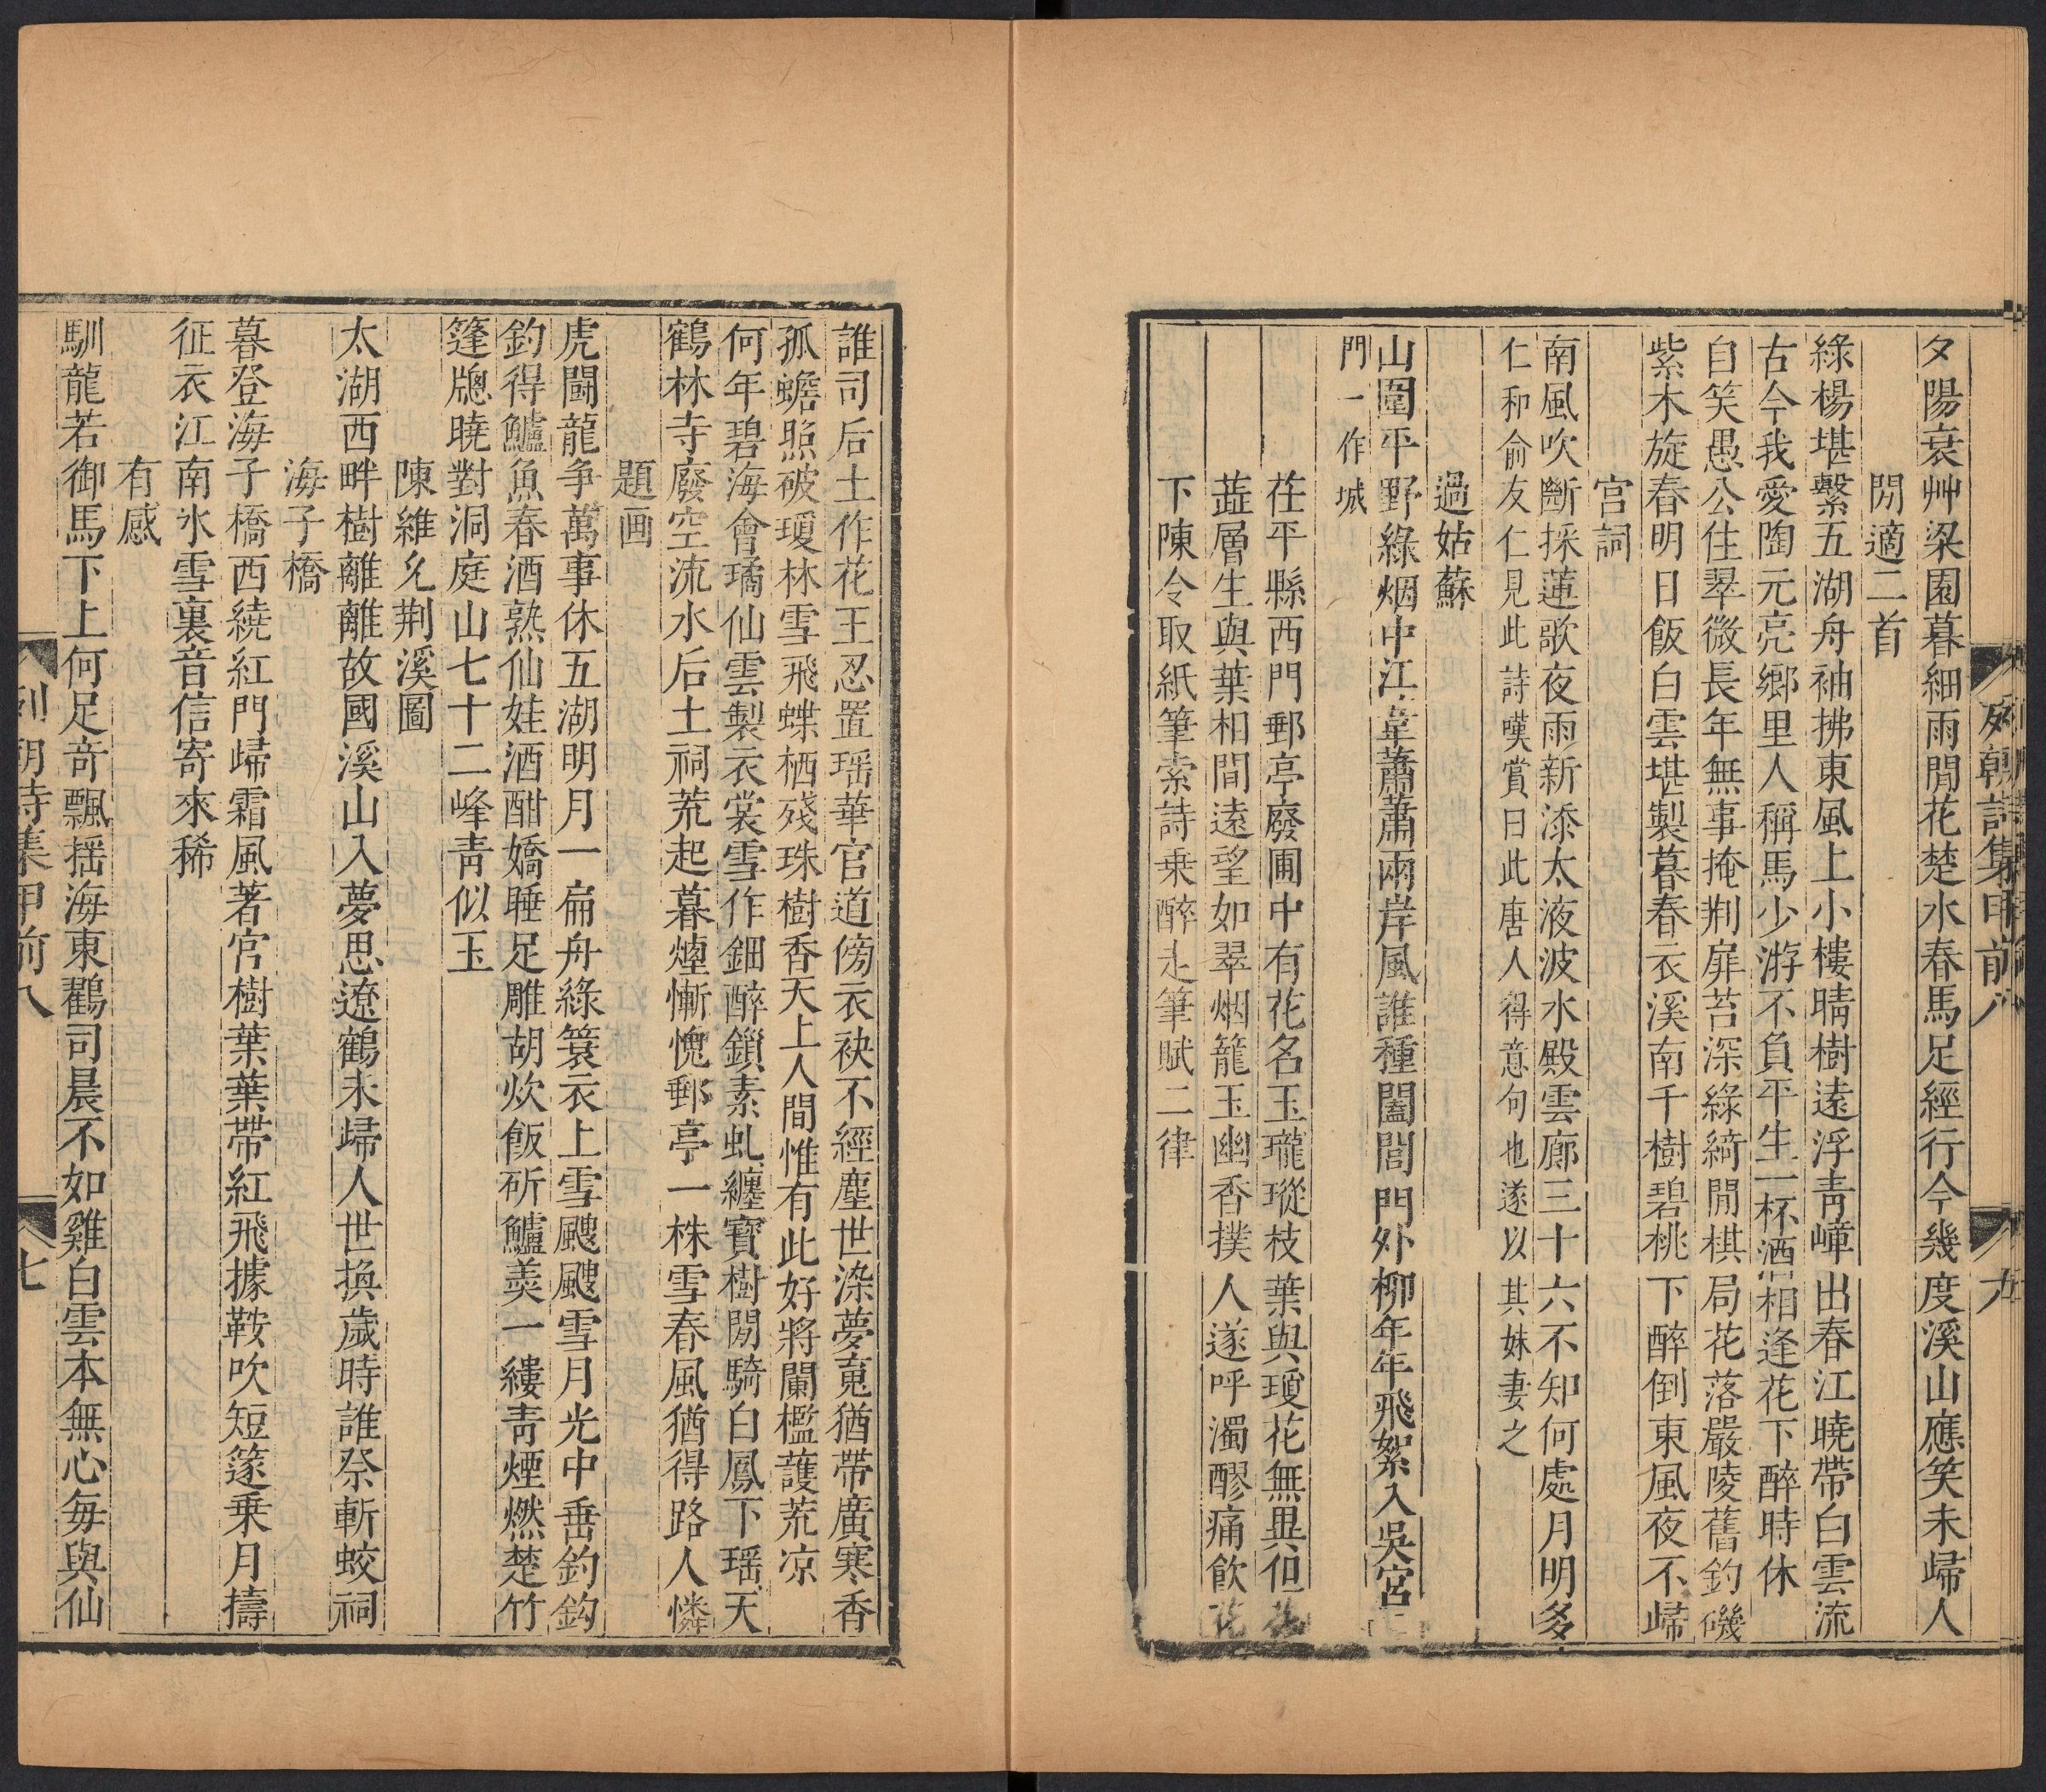 列朝詩集甲前八
九
夕陽衰艸梁園暮細雨閒花楚水春馬足經行今幾度溪山應笑未歸人
閒適二首
綠楊堪繫五湖舟袖拂東風上小樓晴樹遠浮青嶂出春江曉帶白雲流
古今我愛陶元亮鄉里人稱馬少游不負平生一杯酒相逢花下醉時休
自笑愚公住翠微長年無事掩荆扉苔深綠綺閒棋局花落嚴陵舊釣磯
紫木旋春明日飯白雲堪製暮春衣溪南千樹碧桃下醉倒東風夜不歸
宮詞
南風吹斷採蓮歌夜雨新添太液波水殿雲廊三十六不知何處月明多
仁和俞友仁見此詩嘆賞曰此唐人得意句也遂以其妹妻之
過姑蘇
山圍平野綠烟中江葦蕭蕭兩岸風誰種闔閭門外柳年年飛絮入吳宮
門一作城
茌平縣西門郵亭廢圃中有花名玉瓏瑽枝葉與瓊花無異但花
蕋層生與葉相間遠望如翠烟籠玉幽香撲人遂呼濁醪痛飲花
下陳令取紙筆索詩乗醉走筆賦二律
誰司后土作花王忍置瑶華官道傍衣袂不經塵世染夢䰟猶帶廣寒香
孤蟾照破瓊林雪飛蝶栖殘珠樹香天上人間惟有此好將闌檻護荒凉
何年碧海會璚仙雲製衣裳雪作鈿醉鎖素虬纏寳樹閒騎白鳳下瑶天
鶴林寺廢空流水后土祠荒起暮煙慚愧郵亭一株雪春風猶得路人憐
題画
虎鬭龍争萬事休五湖明月一扁舟綠簑衣上雪颼颼雪月光中垂釣鈎
釣得鱸魚春酒熟仙娃酒酣嬌睡足雕胡炊飯斫鱸羮一縷青煙燃楚竹
篷牕曉對洞庭山七十二峰青似玉
陳維允荆溪圖
太湖西畔樹離離故國溪山入夢思遼鶴未歸人世換歲時誰祭斬蛟祠
海子橋
暮登海子橋西繞紅門歸霜風著宮樹葉葉帶紅飛據鞍吹短篴乗月擣
征衣江南氷雪裏音信寄來稀
有感
馴龍若御馬下上何足竒飄揺海東鸛司晨不如雞白雲本無心毎與仙
列朝詩集甲前八
七